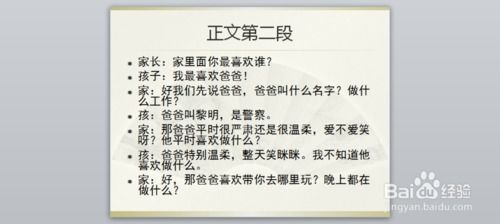 正文第二段
家长：家里面你最喜欢谁？
孩子：我最喜欢爸爸！
家：好我们先说爸爸，爸爸叫什么名字？做什
么工作？
孩：爸爸叫黎明，是警察。
家：那爸爸平时很严肃还是很温柔，爱不爱笑
呀？他平时喜欢做什么？
孩：爸爸特别温柔，整天笑眯眯。我不知道他
喜欢做什么。
家：好，那爸爸喜欢带你去哪里玩？晚上都在
做什么？
Baidu经验
jingyan.baidu.com